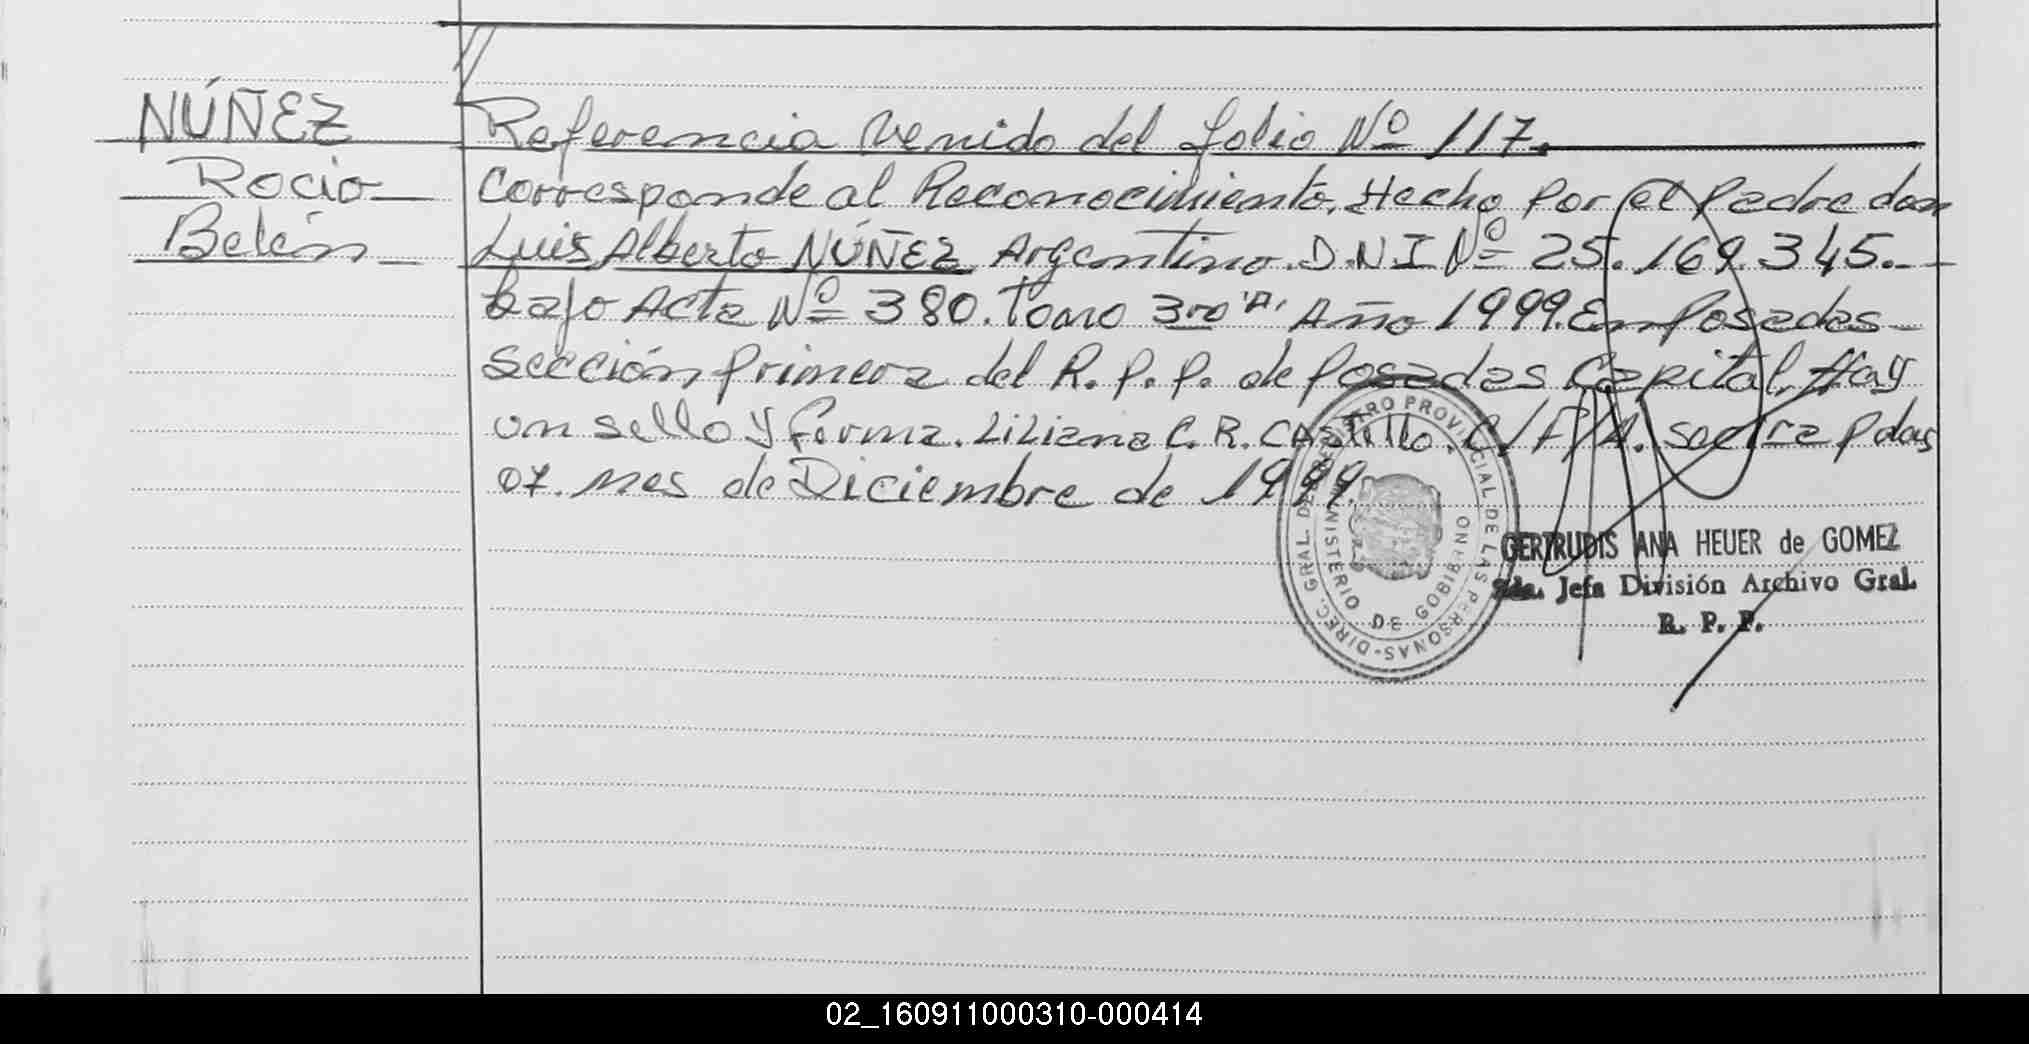 NÚÑEZ
Rocio
Belén
Referencia Venido del folio Nº 117.
Corresponde al Reconocimiento. Hecho Por el Padre don
Luis Alberto NÚÑEZ Argentino. D.N.I Nº 25.169.345.
bajo Acta Nº 380. Tomo 3ro "A". Año 1999. En Posadas
Sección Primera del R. P. P. de Posadas Capital. Hay
un sello y firma. Liliana C. R. Castillo
07. mes de Diciembre de 1999.
DIREC. GRAL. DE REGISTRO PROVINCIAL DE LAS PERSONAS
MINISTERIO DE GOBIERNO
GERTRUDIS ANA HEUER de GOMEZ
Jefa División Archivo Gral.
R. P. P.
02_160911000310-000414